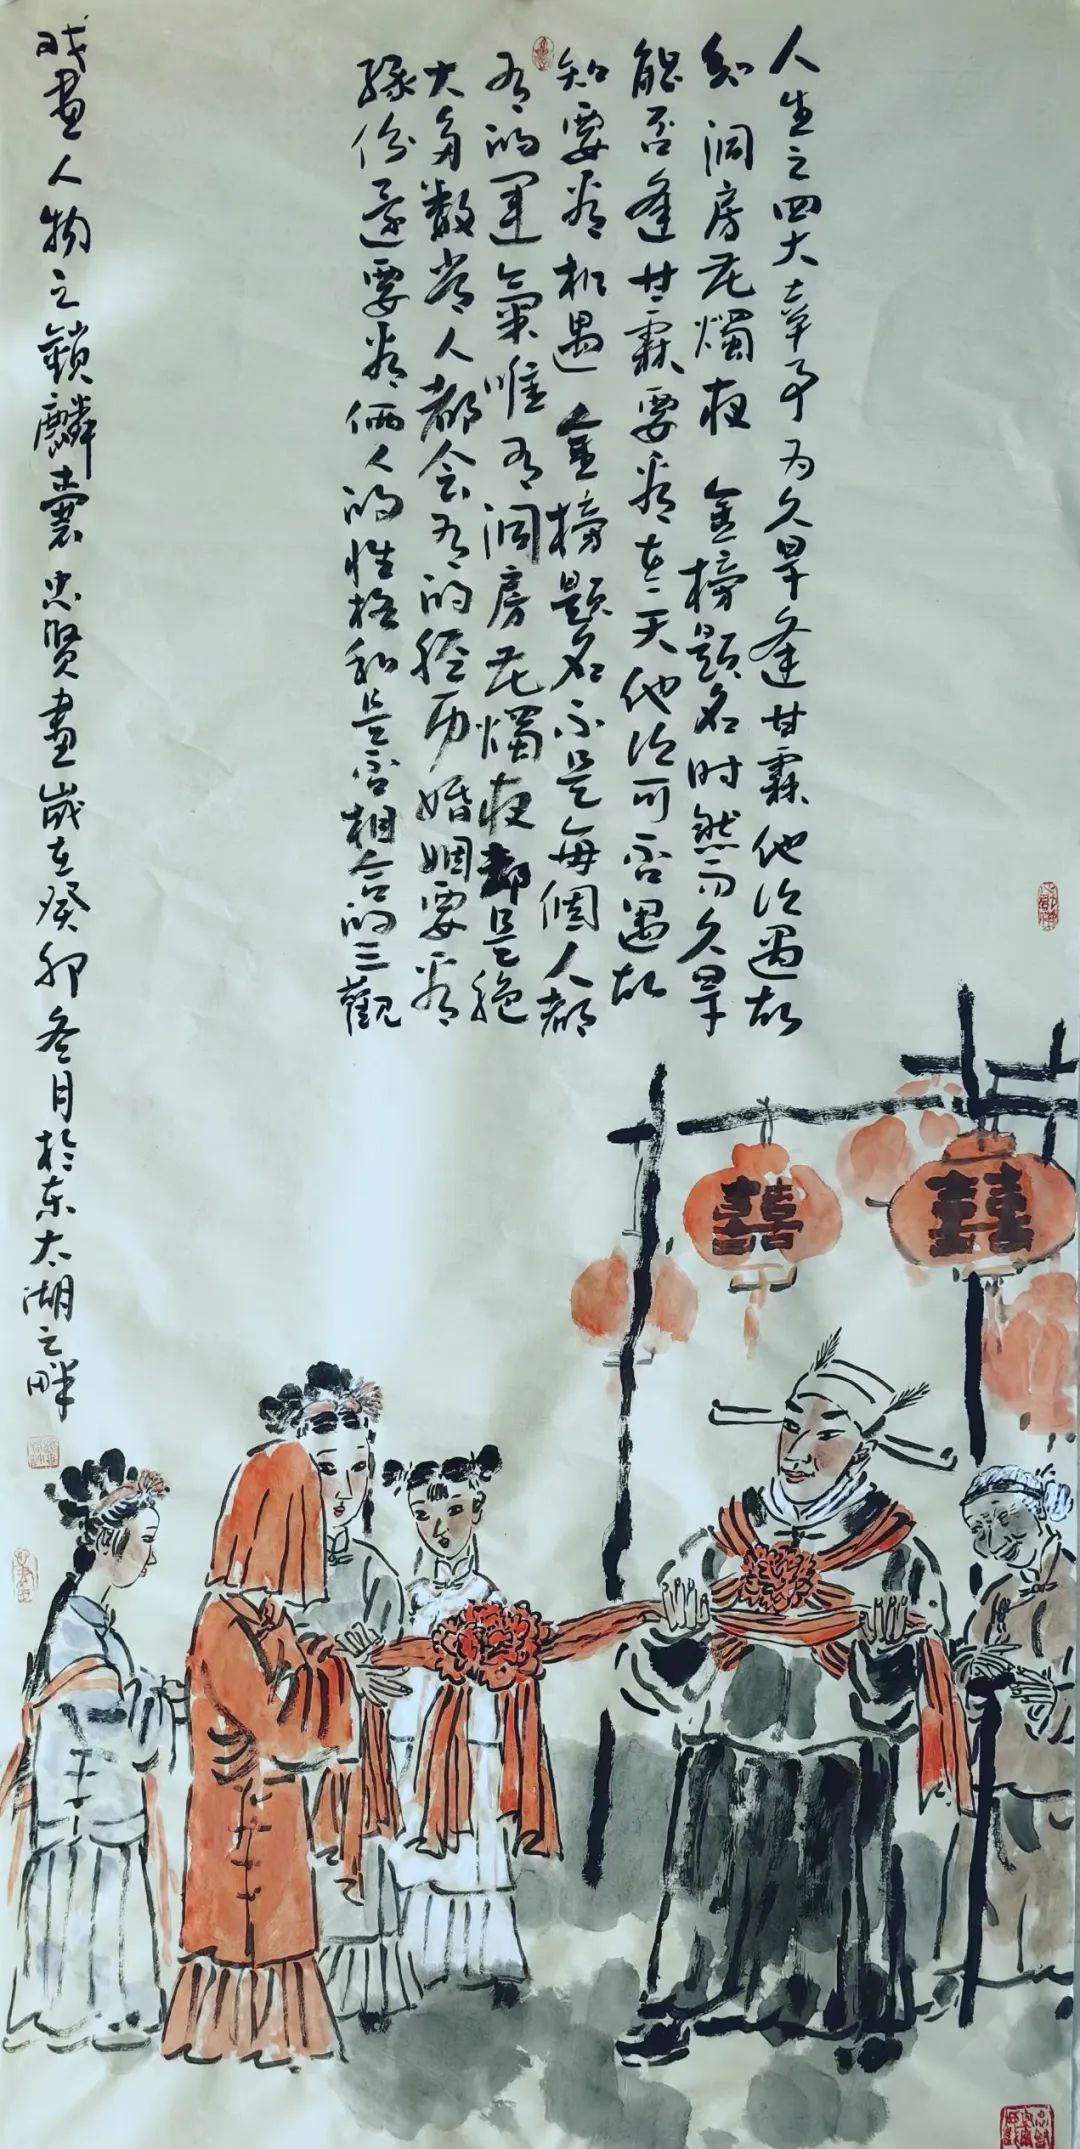 人生之四大幸事为久旱逢甘霖他乡遇故
知洞房花燭夜 金榜题名时然而久旱
能否逢甘霖要看老天他乡可否遇故
知要看机遇 金榜题名不是每個人都
有的運氣唯有洞房花燭夜却是绝
大多数常人都会有的經历婚姻要看
緣份還要看俩人的性格和是否相合的三觀
戏畫人物之鎖麟囊忠贤畫歲在癸卯冬月於东太湖之畔
囍
囍